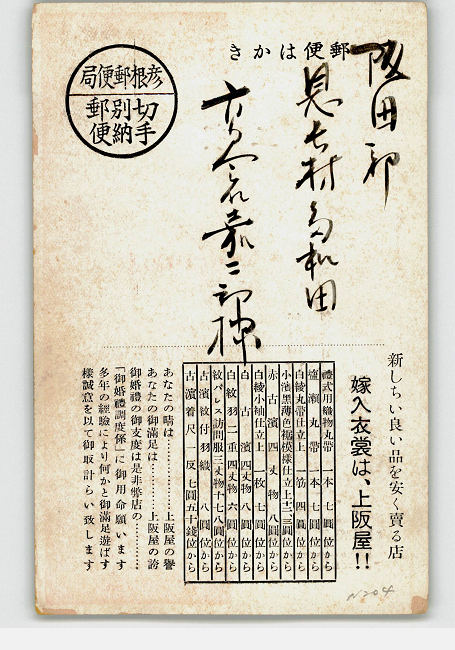 郵便はかき
彦根郵便局
切手別納郵便
阪田郡
息长村多和田
嘉二郎様
新しちい良い品を安く賣る店
嫁入衣裳は、上阪屋!!
禮式用織物丸帯 一本 七圓位から
瀬丸帯 一本 七圓位から
白綾丸帯仕立上 一筋 四圓位から
小池黒薄色裾模様仕立上 三圓位から
赤古濱四丈物 八圓位から
白綾小袖仕立上 一枚 七圓位から
白古濱四丈物 八圓位から
白紋羽二重四丈物 六圓位から
紋パレス訪問服三丈物十七八圓位から
古濱紋付羽織 八圓位から
古濱着尺 一反 七圓五十錢位から
あなたの晴は……………上阪屋の譽
あなたの御滿足は………上阪屋の誇
御婚禮の御支度は是非弊店の………
「御婚禮調度係」に御用命願います
多年の經驗により何かと御滿足遊ばす
樣誠意を以て御取計らい致します
N204